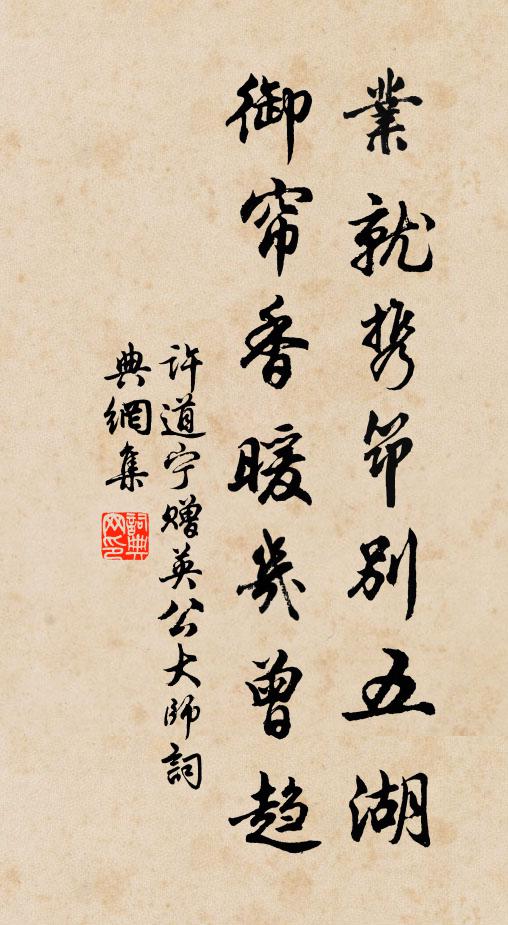 業就携笻別五湖
御帘香暖幾曾趋
许道宁赠英公大師詞
典網集
詞典
网印